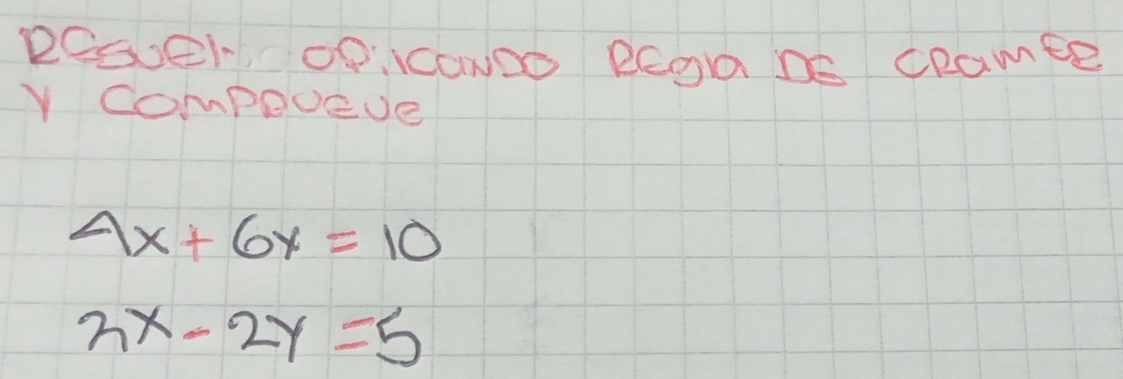 RESUEL. APLICANDO REGLA DE CRAMER
Y COMPRUEVE
4x + 6y = 10
2x - 2y = 5